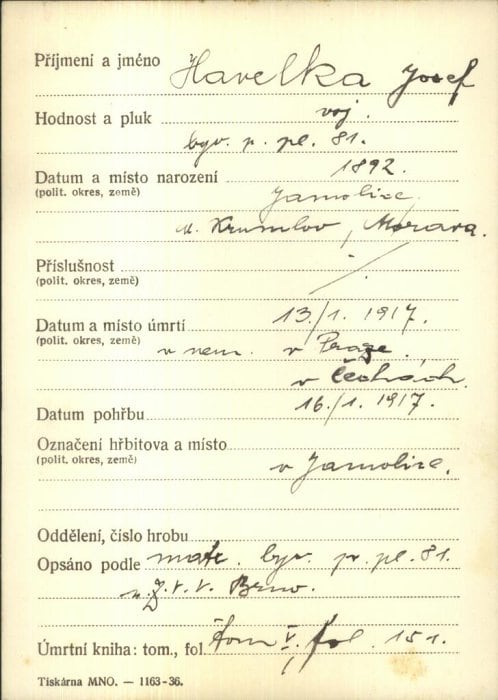 Příjmení a jméno Havelka Josef
Hodnost a pluk voj.
býv. p. pl. 81.
Datum a místo narození 1892.
(polit. okres, země) Jamolice,
M. Krumlov, Morava.
Příslušnost
(polit. okres, země)
Datum a místo úmrtí 13./1. 1917.
(polit. okres, země) v nem. v Praze
v Čechách.
Datum pohřbu 16./1. 1917.
Označení hřbitova a místo
(polit. okres, země) v Jamolice.
Oddělení, číslo hrobu
Opsáno podle matr. býv. p. pl. 81.
Z. V. V. Brno.
Úmrtní kniha: tom., fol. tom V, fol. 151.
Tiskárna MNO. — 1163-36.